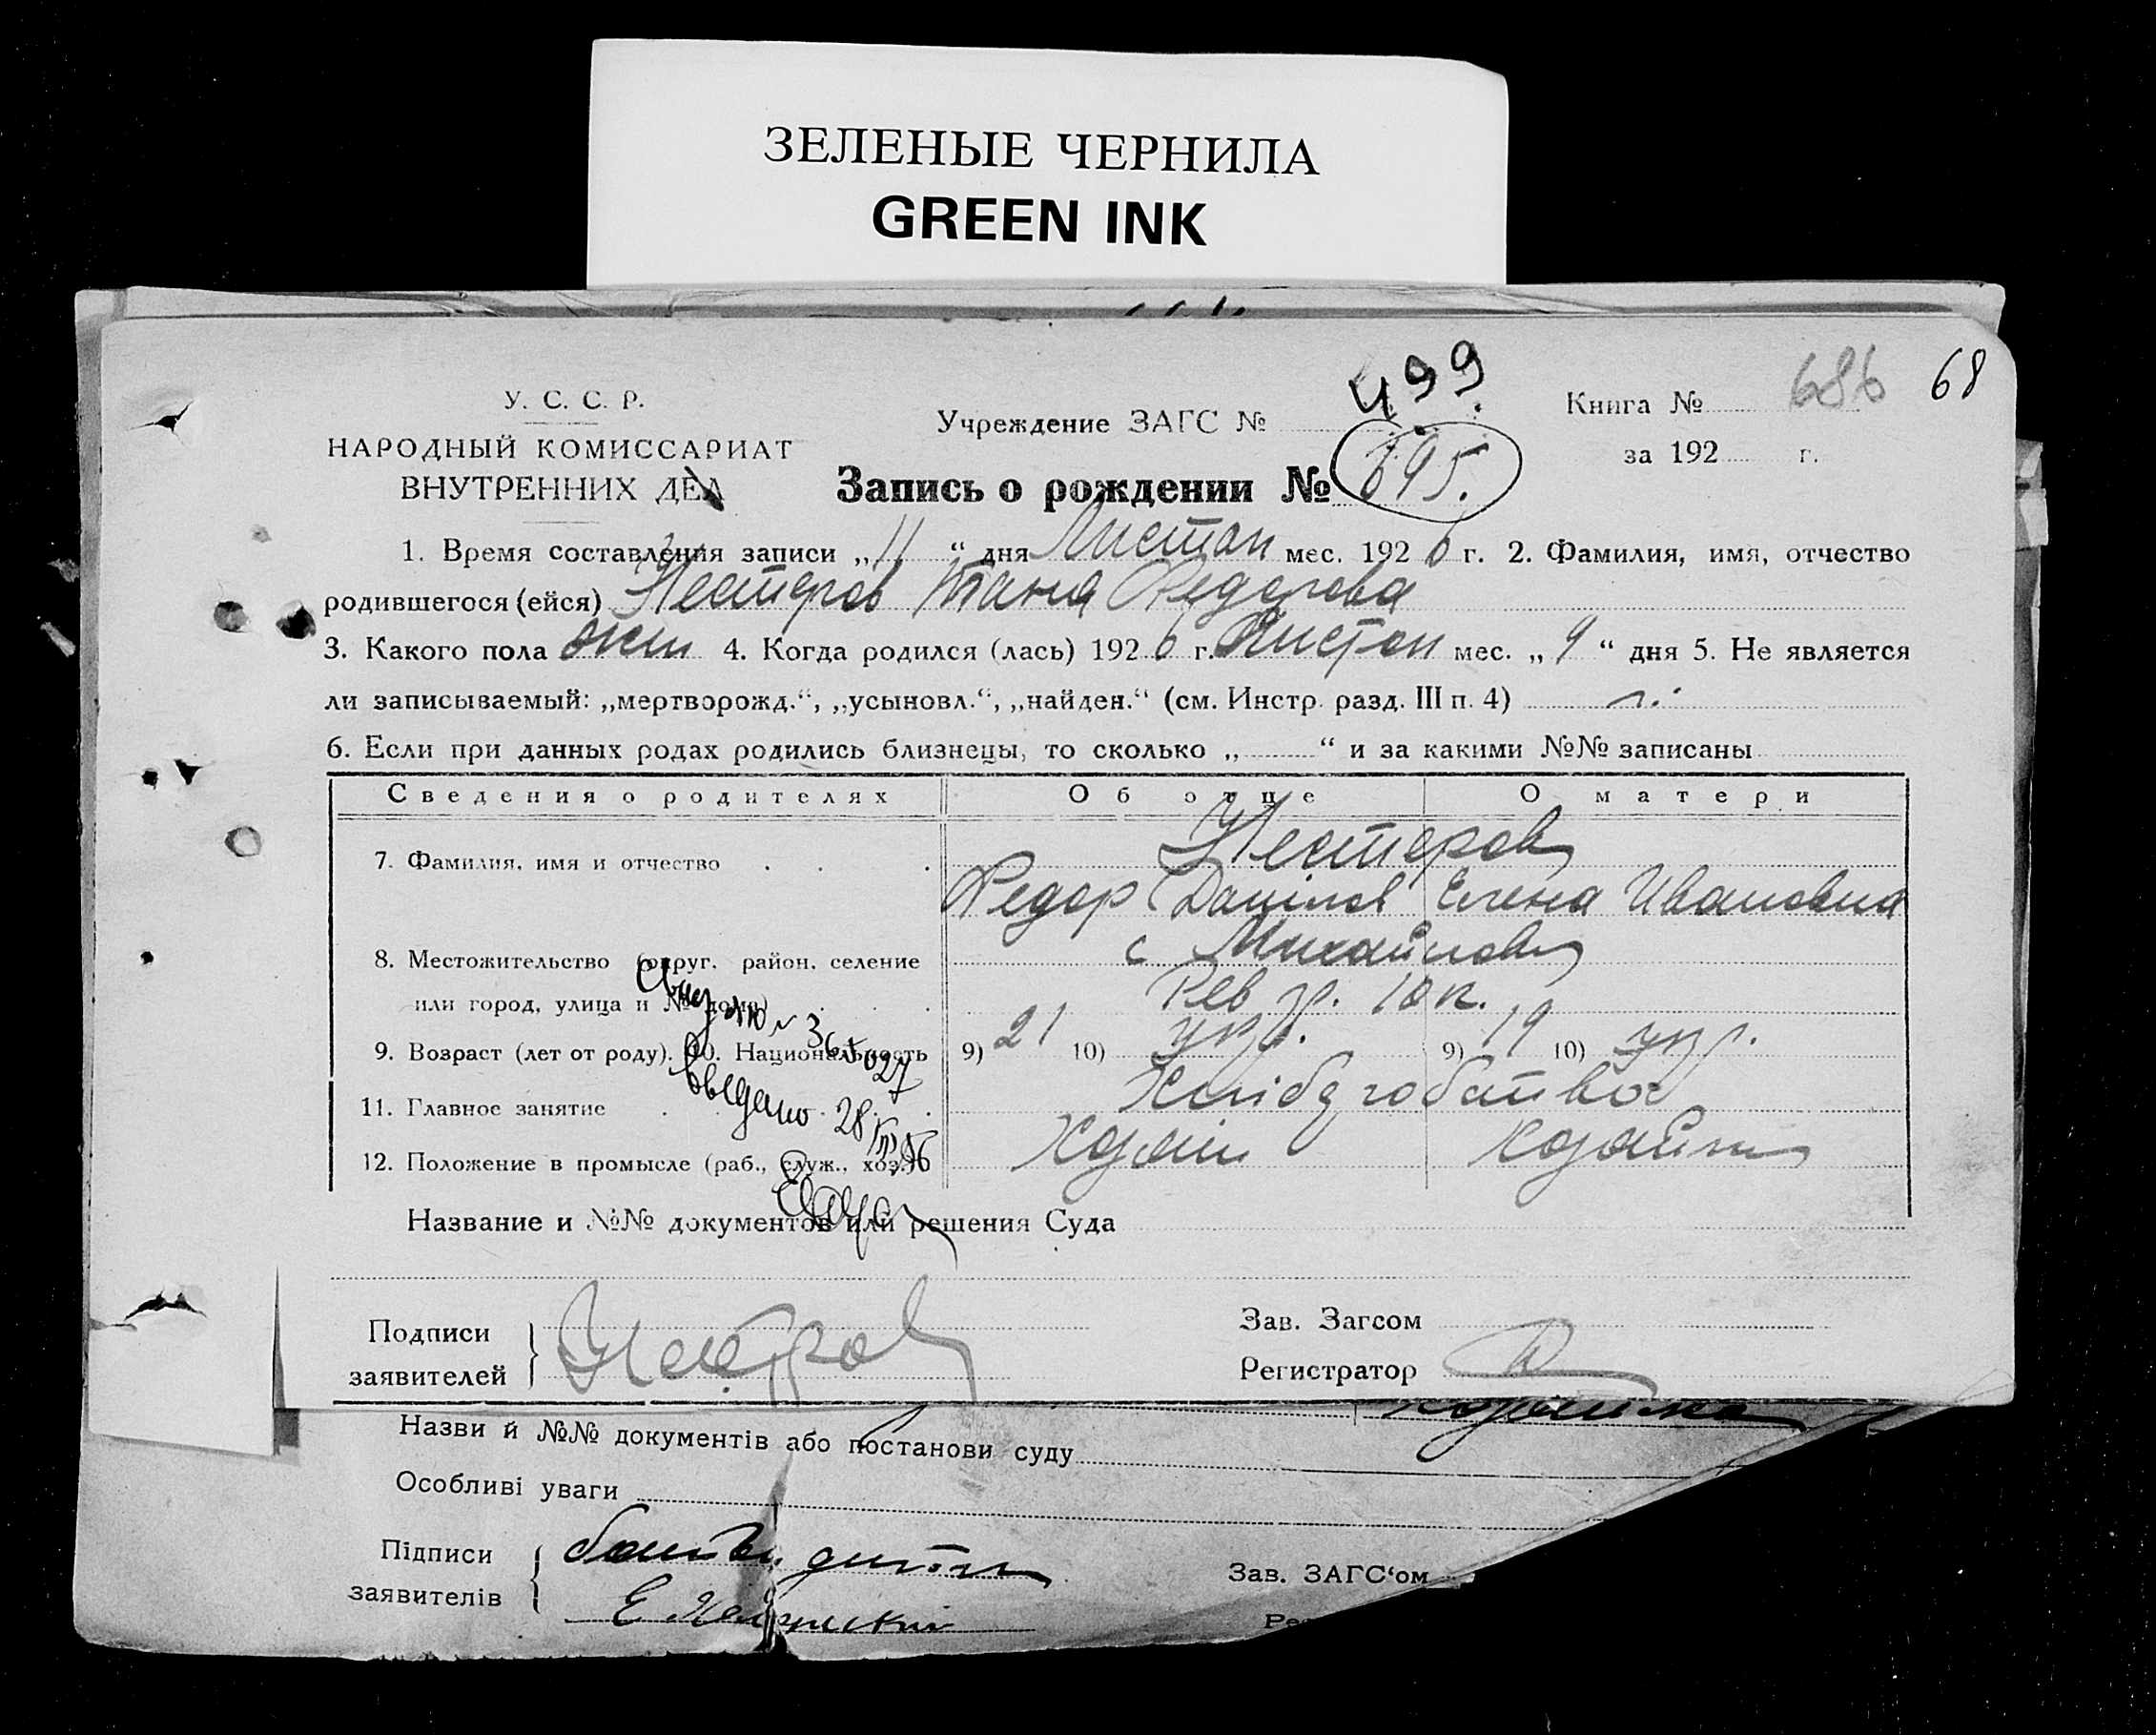 ЗЕЛЕНЫЕ ЧЕРНИЛА
GREEN INK
68
686
499
У. С. С. Р.
НАРОДНЫЙ КОМИССАРИАТ
ВНУТРЕННИХ ДЕЛ
Учреждение ЗАГС №
Книга №
за 192 г.
Запись о рождении № 695.
1. Время составления записи „11“ дня Листоп мес. 1926 г. 2. Фамилия, имя, отчество
родившегося (ейся) Нестеров Таня Федорова
3. Какого пола жен 4. Когда родился (лась) 1926 г. Листоп мес. „9“ дня 5. Не является
ли записываемый: „мертворожд.“, „усыновл.“, „найден.“ (см. Инстр. разд. III п. 4)
6. Если при данных родах родились близнецы, то сколько „ “ и за какими №№ записаны
Сведения о родителях Об отце О матери
7. Фамилия, имя и отчество Нестеров
Федор Данілов Елена Ивановна
8. Местожительство (округ, район, селение с Михайловка
или город, улица и № дома)
9. Возраст (лет от роду). 10. Национальность 9) 21 10) укр. 9) 19 10) укр.
11. Главное занятие Хлібороботво
12. Положение в промысле (раб., служ., хоз.) Хозяин хозяйка
I ЭЮ № 365027
выдано 28/VIII 56
Название и №№ документов или решения Суда
Подписи
заявителей Нестеров
Зав. Загсом
Регистратор
Назви й №№ документів або постанови суду
Особливі уваги
Підписи
заявителів
батько дитини
Зав. ЗАГС‘ом